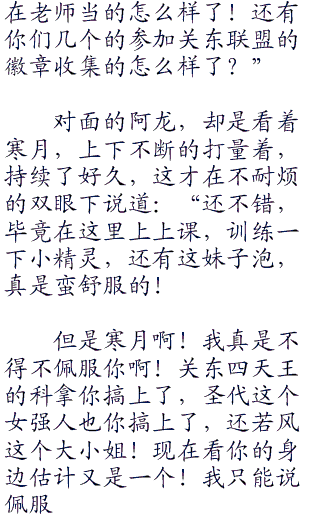 在老师当的怎么样了！还有
你们几个的参加关东联盟的
徽章收集的怎么样了？”
对面的阿龙，却是看着
寒月，上下不断的打量着，
持续了好久，这才在不耐烦
的双眼下说道：“还不错，
毕竟在这里上上课，训练一
下小精灵，还有这妹子泡，
真是蛮舒服的！
但是寒月啊！我真是不
得不佩服你啊！关东四天王
的科拿你搞上了，圣代这个
女强人也你搞上了，还若风
这个大小姐！现在看你的身
边估计又是一个！我只能说
佩服